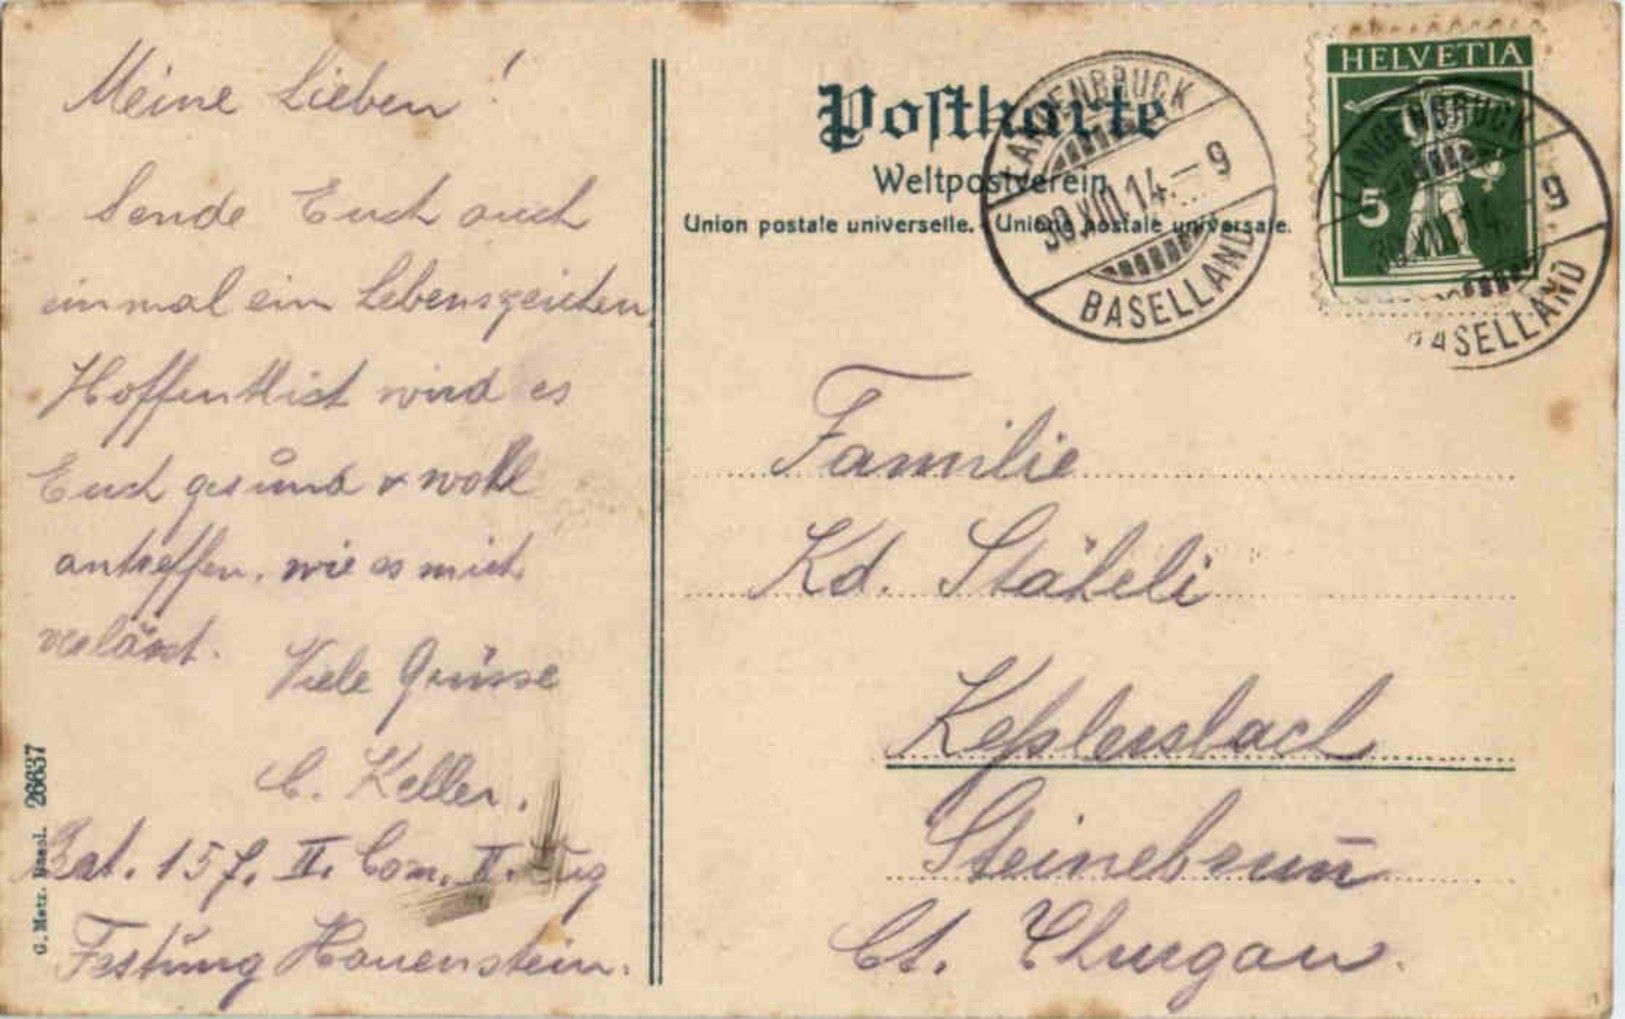 Meine Lieben!
Sende Euch auch
einmal ein Lebenszeichen
Hoffentlich wird es
Euch gesund & wohl
antreffen, wie es mich
verlässt.
Viele Grüsse
C. Keller.
Bat. 157. II. Com. II. Zug
Festung Hauenstein.
G. Metz. Basel. 26637
Postkarte
Weltpostverein
Union postale universelle. Unione postale universale.
LANGENBRUCK
30.XII.14.–9
BASELLAND
HELVETIA
5
LANGENBRUCK
30.XII.14.–9
BASELLAND
Familie
Kd. Stäheli
Kesslersbach
Steinebrunn̄
Ct. Thurgau.